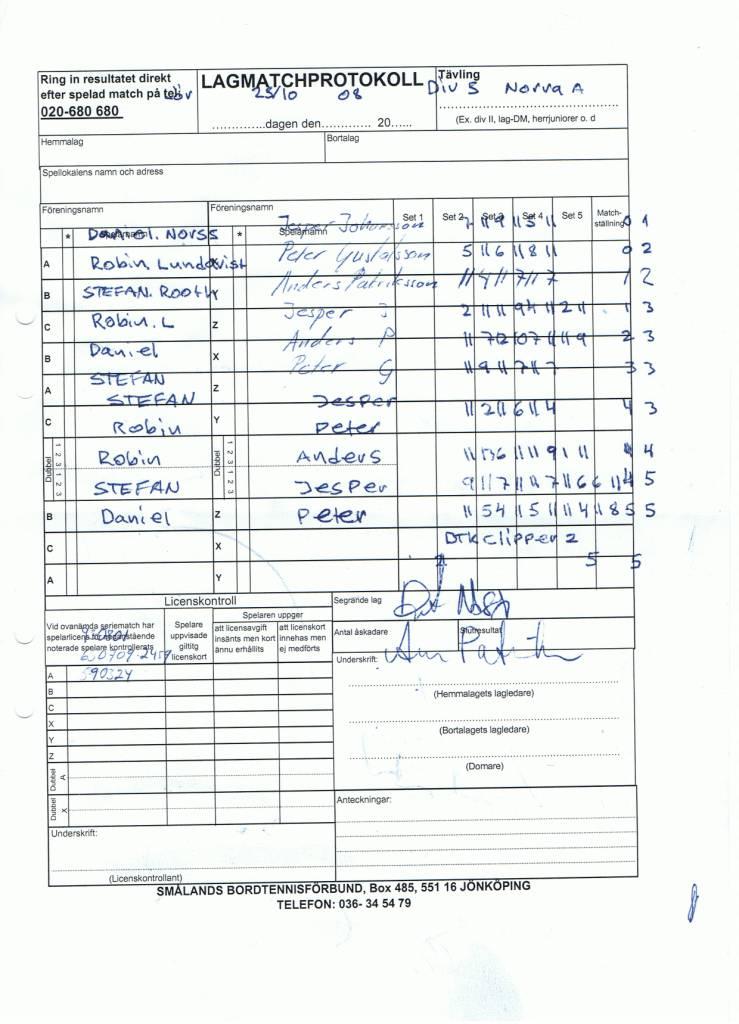 Ring in resultatet direkt
efter spelad match på tel:
020-680 680
LAGMATCHPROTOKOLL
25/10 08
..............dagen den............ 20......
Tävling
Div 5 Norra A
(Ex. div II, lag-DM, herrjuniorer o. d
Hemmalag
Bortalag
Spellokalens namn och adress
Föreningsnamn Föreningsnamn Set 1 Set 2 Set 3 Set 4 Set 5 Match-
ställning
* Daniel. Norss * Spelarnamn Jesper Johansson 0 1
A Robin Lundqvist X Peter Gustafsson 5 11 6 11 8 11 0 2
B STEFAN. ROOTH Y Anders Patriksson 1 2
C Robin. L Z Jesper J 2 11 11 9 4 11 2 11 1 3
B Daniel X Anders P 2 3
A STEFAN Z Peter G 11 9 11 7 11 7 3 3
STEFAN Jesper 11 2 11 6 11 4 4 3
C Robin Y Peter
Dubbel 1 2 3 1 2 3 Robin Dubbel 1 2 3 1 2 3 Anders 4 4
STEFAN Jesper 9 11 7 11 11 7 11 6 4 5
B Daniel Z Peter 11 5 4 11 5 11 11 4 11 8 5 5
C X BTK Clipper 2
5 5
A Y
Licenskontroll
Vid ovanämda seriematch har
spelarlicens för nedanstående
noterade spelare kontrollerats
650709-2459
Spelare
uppvisade
giltig
licenskort
Spelaren uppger
att licensavgift
insänts men kort
ännu erhållits
att licenskort
innehas men
ej medförts
A 590324
B
C
X
Y
Z
Dubbel A
Dubbel X
Underskrift:
(Licenskontrollant)
Segrande lag
Antal åskadare
Slutresultat
Underskrift:
(Hemmalagets lagledare)
(Bortalagets lagledare)
(Domare)
Anteckningar:
SMÅLANDS BORDTENNISFÖRBUND, Box 485, 551 16 JÖNKÖPING
TELEFON: 036- 34 54 79